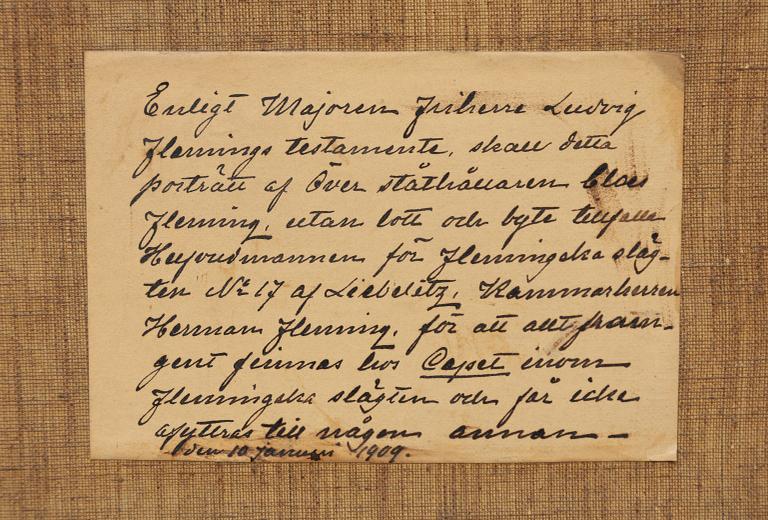 Enligt Majoren friherre Ludvig
Flemings testamente, skall detta
porträtt af Över ståthållaren Claes
Fleming, utan lott och byte tillfalla
Hufvudmannen för Flemingska släg-
ten No 17 af Liebelitz, Kammarherren
Herman Fleming, för att allt fram-
gent finnas hos Capet inom
Flemingska slägten och får icke
afyttras till någon annan —
den 10 januari 1909.